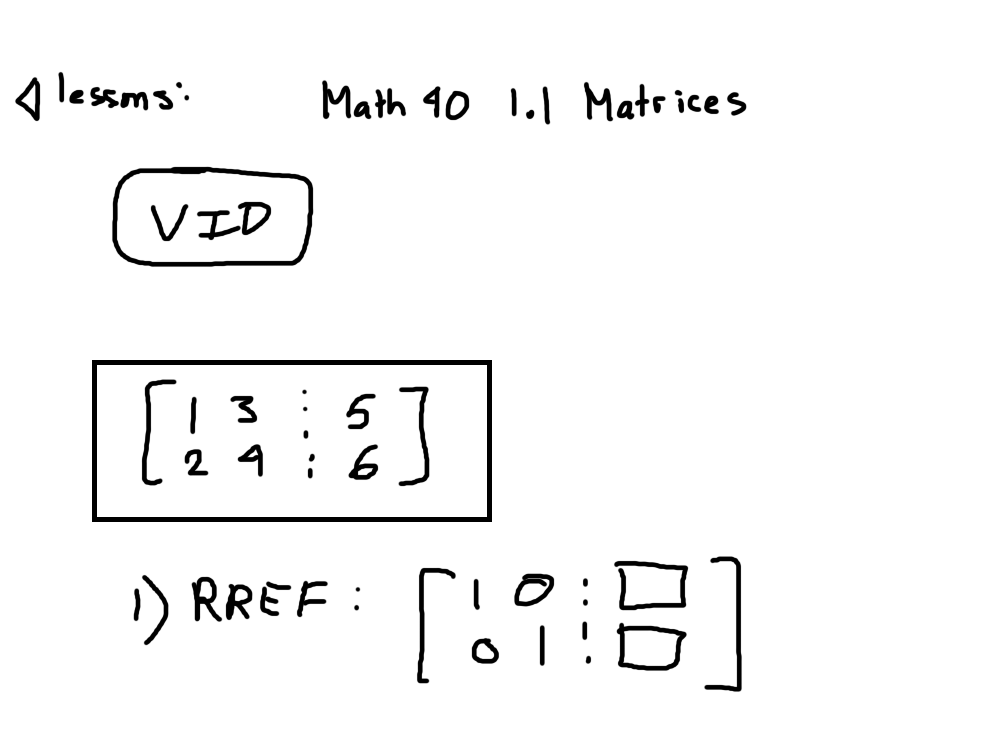 lessons: Math 40 1.1 Matrices
VID
[ 1 3 ⋮ 5 ]
[ 2 4 ⋮ 6 ]
1) RREF : [ 1 0 ⋮ □ ]
[ 0 1 ⋮ □ ]